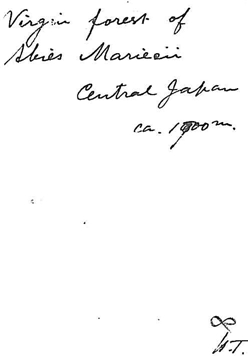 Virgin forest of
Abies Mariesii
Central Japan
ca. 1900m.
W.T.